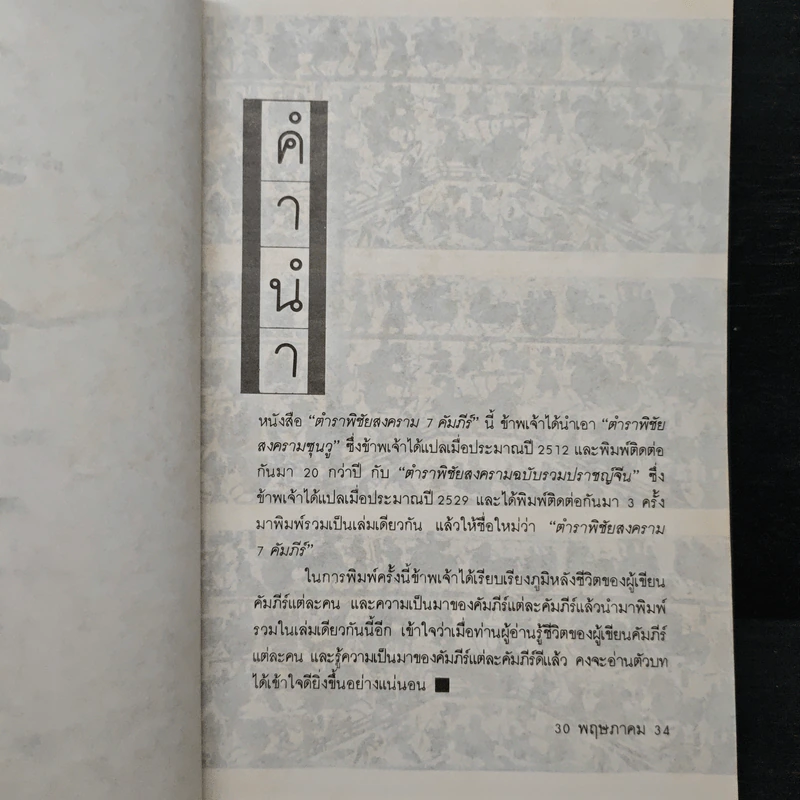 คำนำ
หนังสือ “ตำราพิชัยสงคราม 7 คัมภีร์” นี้ ข้าพเจ้าได้นำเอา “ตำราพิชัย
สงครามซุนวู” ซึ่งข้าพเจ้าได้แปลเมื่อประมาณปี 2512 และพิมพ์ติดต่อ
กันมา 20 กว่าปี กับ “ตำราพิชัยสงครามฉบับรวมปราชญ์จีน” ซึ่ง
ข้าพเจ้าได้แปลเมื่อประมาณปี 2529 และได้พิมพ์ติดต่อกันมา 3 ครั้ง
มาพิมพ์รวมเป็นเล่มเดียวกัน แล้วให้ชื่อใหม่ว่า “ตำราพิชัยสงคราม
7 คัมภีร์”
ในการพิมพ์ครั้งนี้ข้าพเจ้าได้เรียบเรียงภูมิหลังชีวิตของผู้เขียน
คัมภีร์แต่ละคน และความเป็นมาของคัมภีร์แต่ละคัมภีร์แล้วนำมาพิมพ์
รวมในเล่มเดียวกันนี้อีก เข้าใจว่าเมื่อท่านผู้อ่านรู้ชีวิตของผู้เขียนคัมภีร์
แต่ละคน และรู้ความเป็นมาของคัมภีร์แต่ละคัมภีร์ดีแล้ว คงจะอ่านตัวบท
ได้เข้าใจดียิ่งขึ้นอย่างแน่นอน ■
30 พฤษภาคม 34